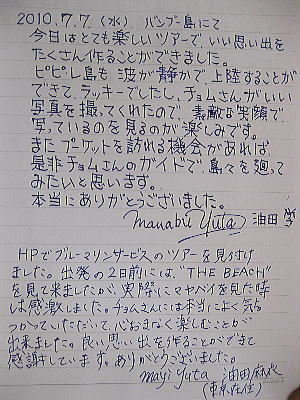 2010.7.7 (水) バンブー島にて
今日はとても楽しいツアーで、いい思い出を
たくさん作ることができました。
ピピレ島も波が静かで、上陸することが
できて、ラッキーでしたし、チョムさんがいい
写真を撮ってくれたので、素敵な笑顔で
写っているのを見るのが楽しみです。
またプーケットを訪れる機会があれば
是非チョムさんのガイドで、島々を廻って
みたいと思います。
本当にありがとうございました。
Manabu Yuta 油田 学
HPでブルーマリンサービスのツアーを見付け
ました。出発の2日前には、"THE BEACH"
を見て来ましたが、実際にマヤベイを見た時
は感激しました。チョムさんには本当によく気を
つかっていただいて、心おきなく楽しむことが
出来ました。良い思い出を作ることができて
感謝しています。ありがとうございました。
Mayi Yuta 油田 麻衣
(東京在住)